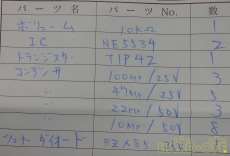 パーツ名 パーツNo. 数
ボリューム 10KΩ 1
IC NE5534 2
トランジスター TIP42 1
コンデンサ 100μF/25V 3
〃 47μF/25V 5
〃 22μF/50V 3
〃 10μF/50V 8
ダイオード